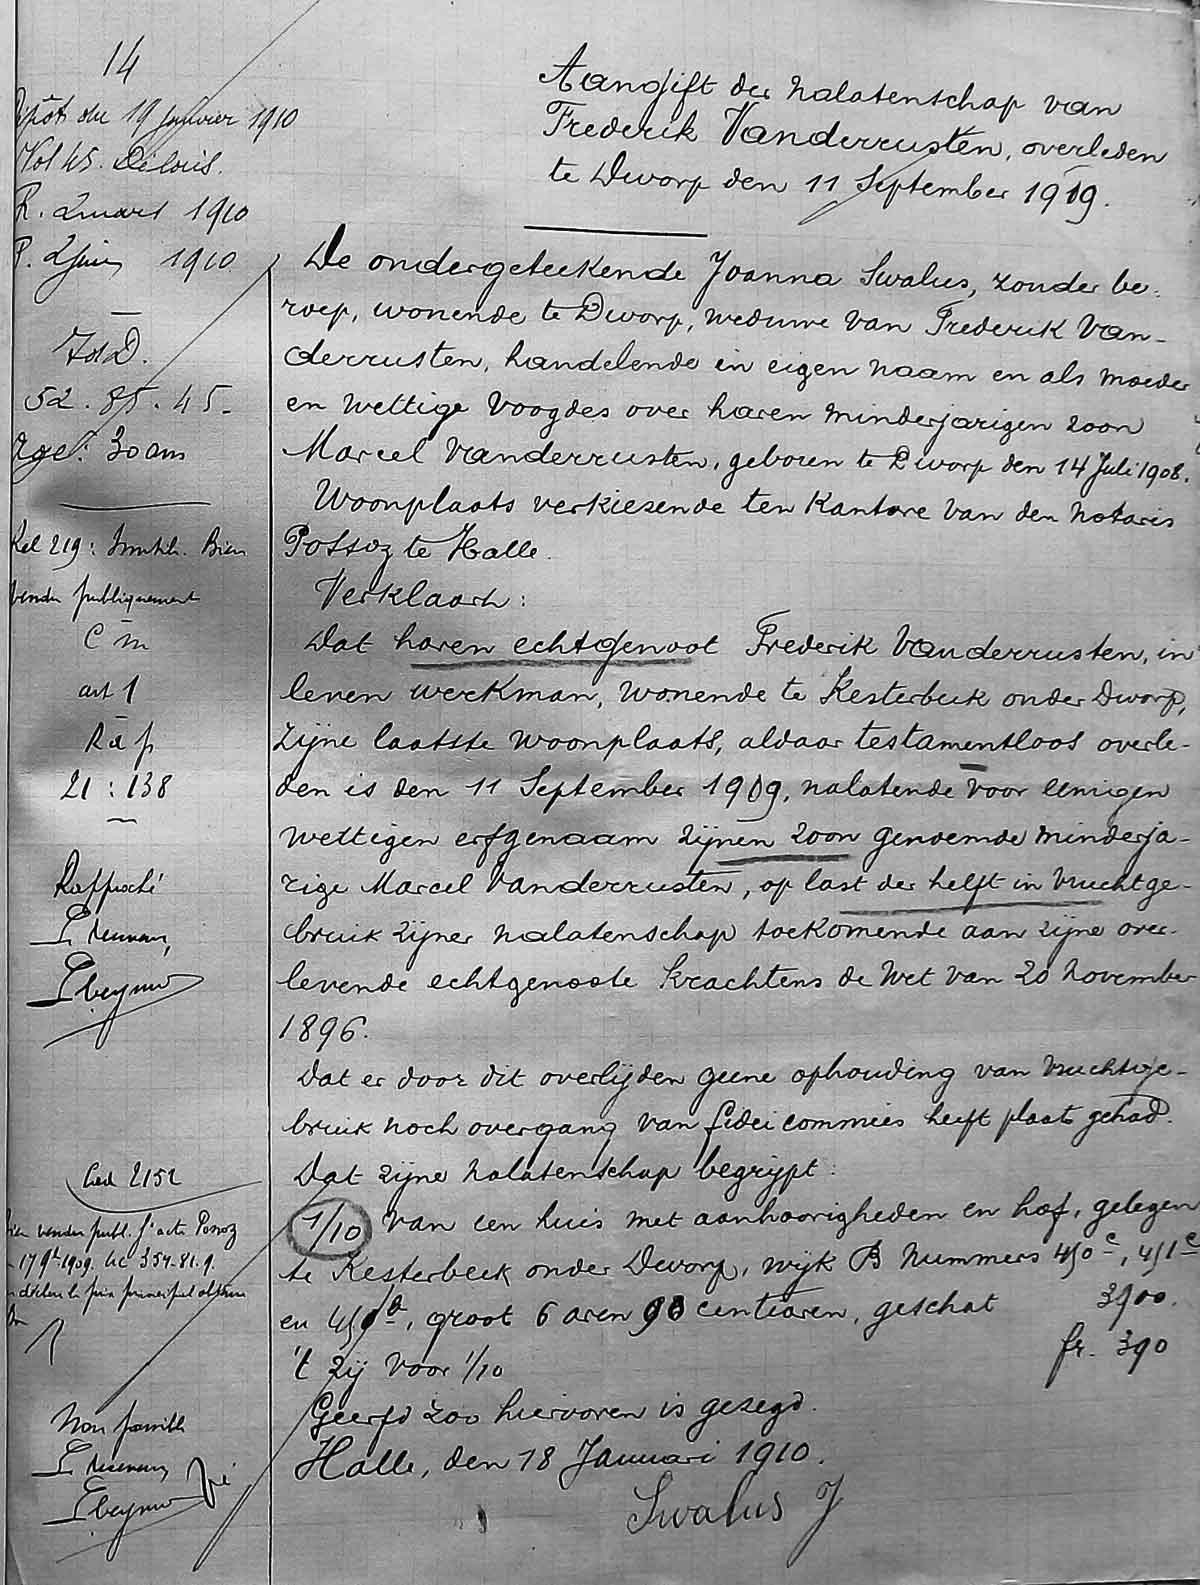 14
Dépôt du 19 Janvier 1910
Vol 45.
R. 2 mars 1910
P. 2 Juin 1910
52. 85. 45.
age: 30 ans
Rel 219: Immob. Bien
vendu publiquement
art 1
21 : 138
Rapproché
Led 2152
Bien vendu publ. Possoz
1909.
le prix principal obtenu
Aangift der nalatenschap van
Frederik Vanderrusten, overleden
te Dworp den 11 September 1909.
De ondergeteekende Joanna Swalus, zonder be-
roep, wonende te Dworp, weduwe van Frederik Van-
derrusten, handelende in eigen naam en als moeder
en wettige voogdes over haren minderjarigen zoon
Marcel Vanderrusten, geboren te Dworp den 14 Juli 1908.
Woonplaats verkiezende ten Kantore van den Notaris
Possoz te Halle.
Verklaart:
Dat haren echtgenoot Frederik Vanderrusten, in
leven werkman, wonende te Kesterbeek onder Dworp,
zijne laatste woonplaats, aldaar testamentloos overle-
den is den 11 September 1909, nalatende voor eenigen
wettigen erfgenaam zijnen zoon genoemde minderja-
rige Marcel Vanderrusten, op last der helft in vruchtge-
bruik zijner nalatenschap toekomende aan zijne over-
levende echtgenoote krachtens de Wet van 20 November
1896.
Dat er door dit overlijden geene ophouding van vruchtge-
bruik noch overgang van fidei commies heeft plaats gehad.
Dat zijne nalatenschap begrijpt:
1/10 van een huis met aanhoorigheden en hof, gelegen
te Kesterbeek onder Dworp, wijk B Nummers 450c, 451c
en groot 6 aren 90 centiaren, geschat 3900.
't zij voor 1/10 fr. 390
Geerfd zoo hiervoren is gezegd.
Halle, den 18 Januari 1910.
Swalus J